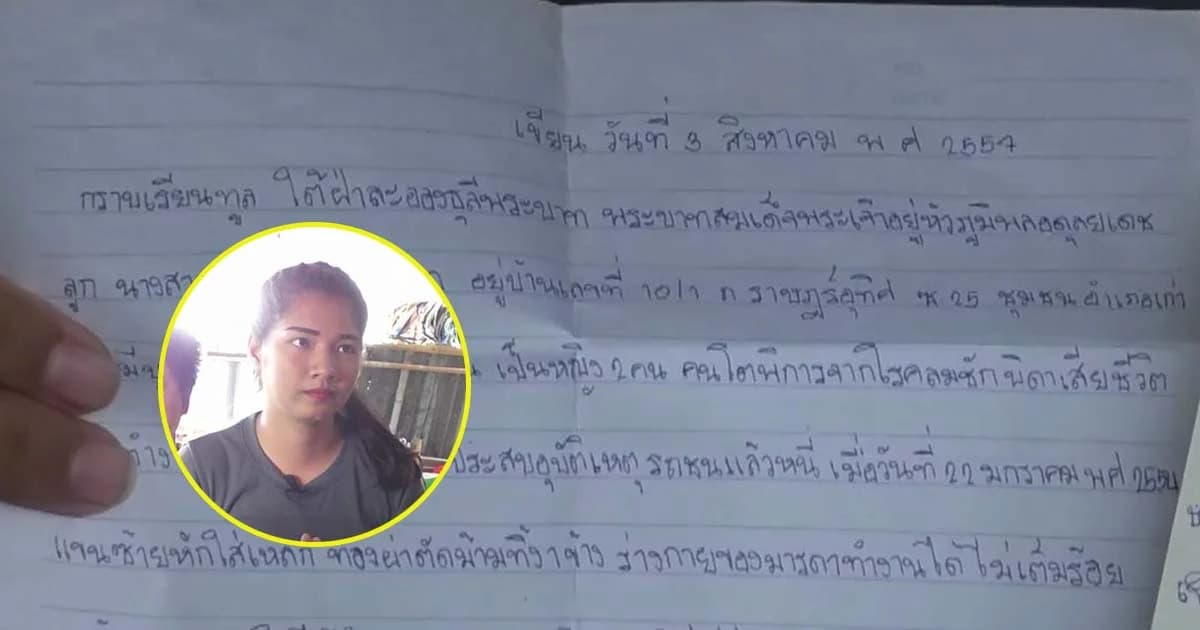 เขียน วันที่ 3 สิงหาคม พ ศ 2557
กราบเรียนทูล ใต้ฝ่าละอองธุลีพระบาท พระบาทสมเด็จพระเจ้าอยู่หัวภูมิพลอดุลยเดช
ลูก นางสา อยู่บ้านเลขที่ 10/1 ถ ราษฎร์อุทิศ ซ 25 ชุมชนอำเภอเก่า
มี เป็นหญิง 2 คน คนโตพิการจากโรคลมชัก บิดาเสียชีวิต
ประสบอุบัติเหตุ รถชนแล้วหนี เมื่อวันที่ 22 มกราคม พศ
แขนซ้ายหักใส่เหล็ก ท้องผ่าตัดม้ามทิ้ง 1 ข้าง ร่างกายของมารดาทำงานได้ไม่เต็มร้อย